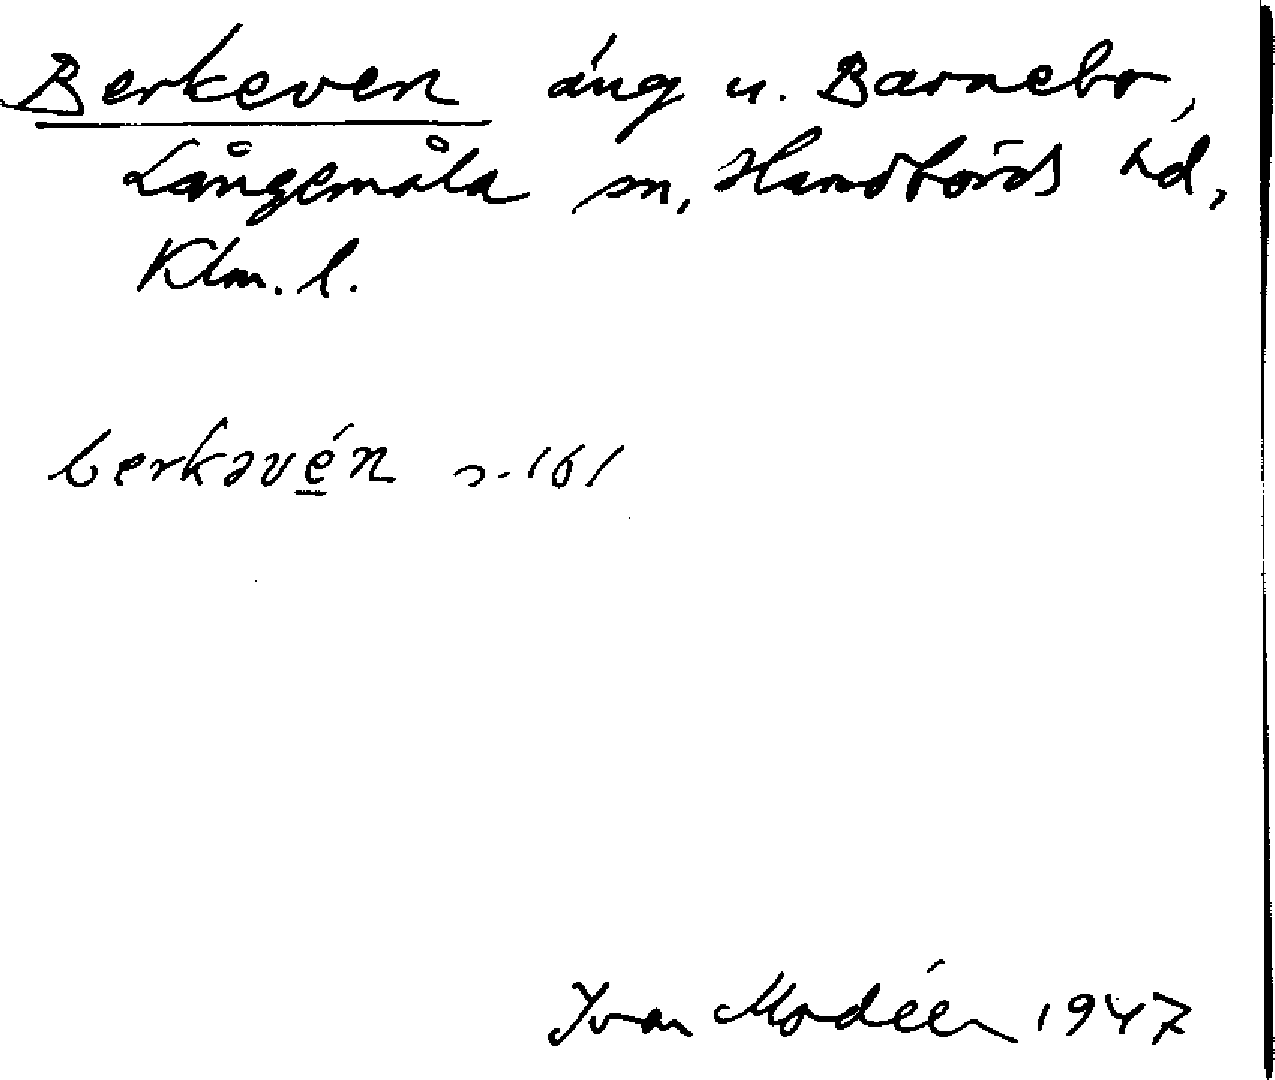 Berkeven äng u. Barnebo,
Långemåla sn, Handbörds hd,
Klm. l.
berkəvén s. 161
Ivan Modéer 1947